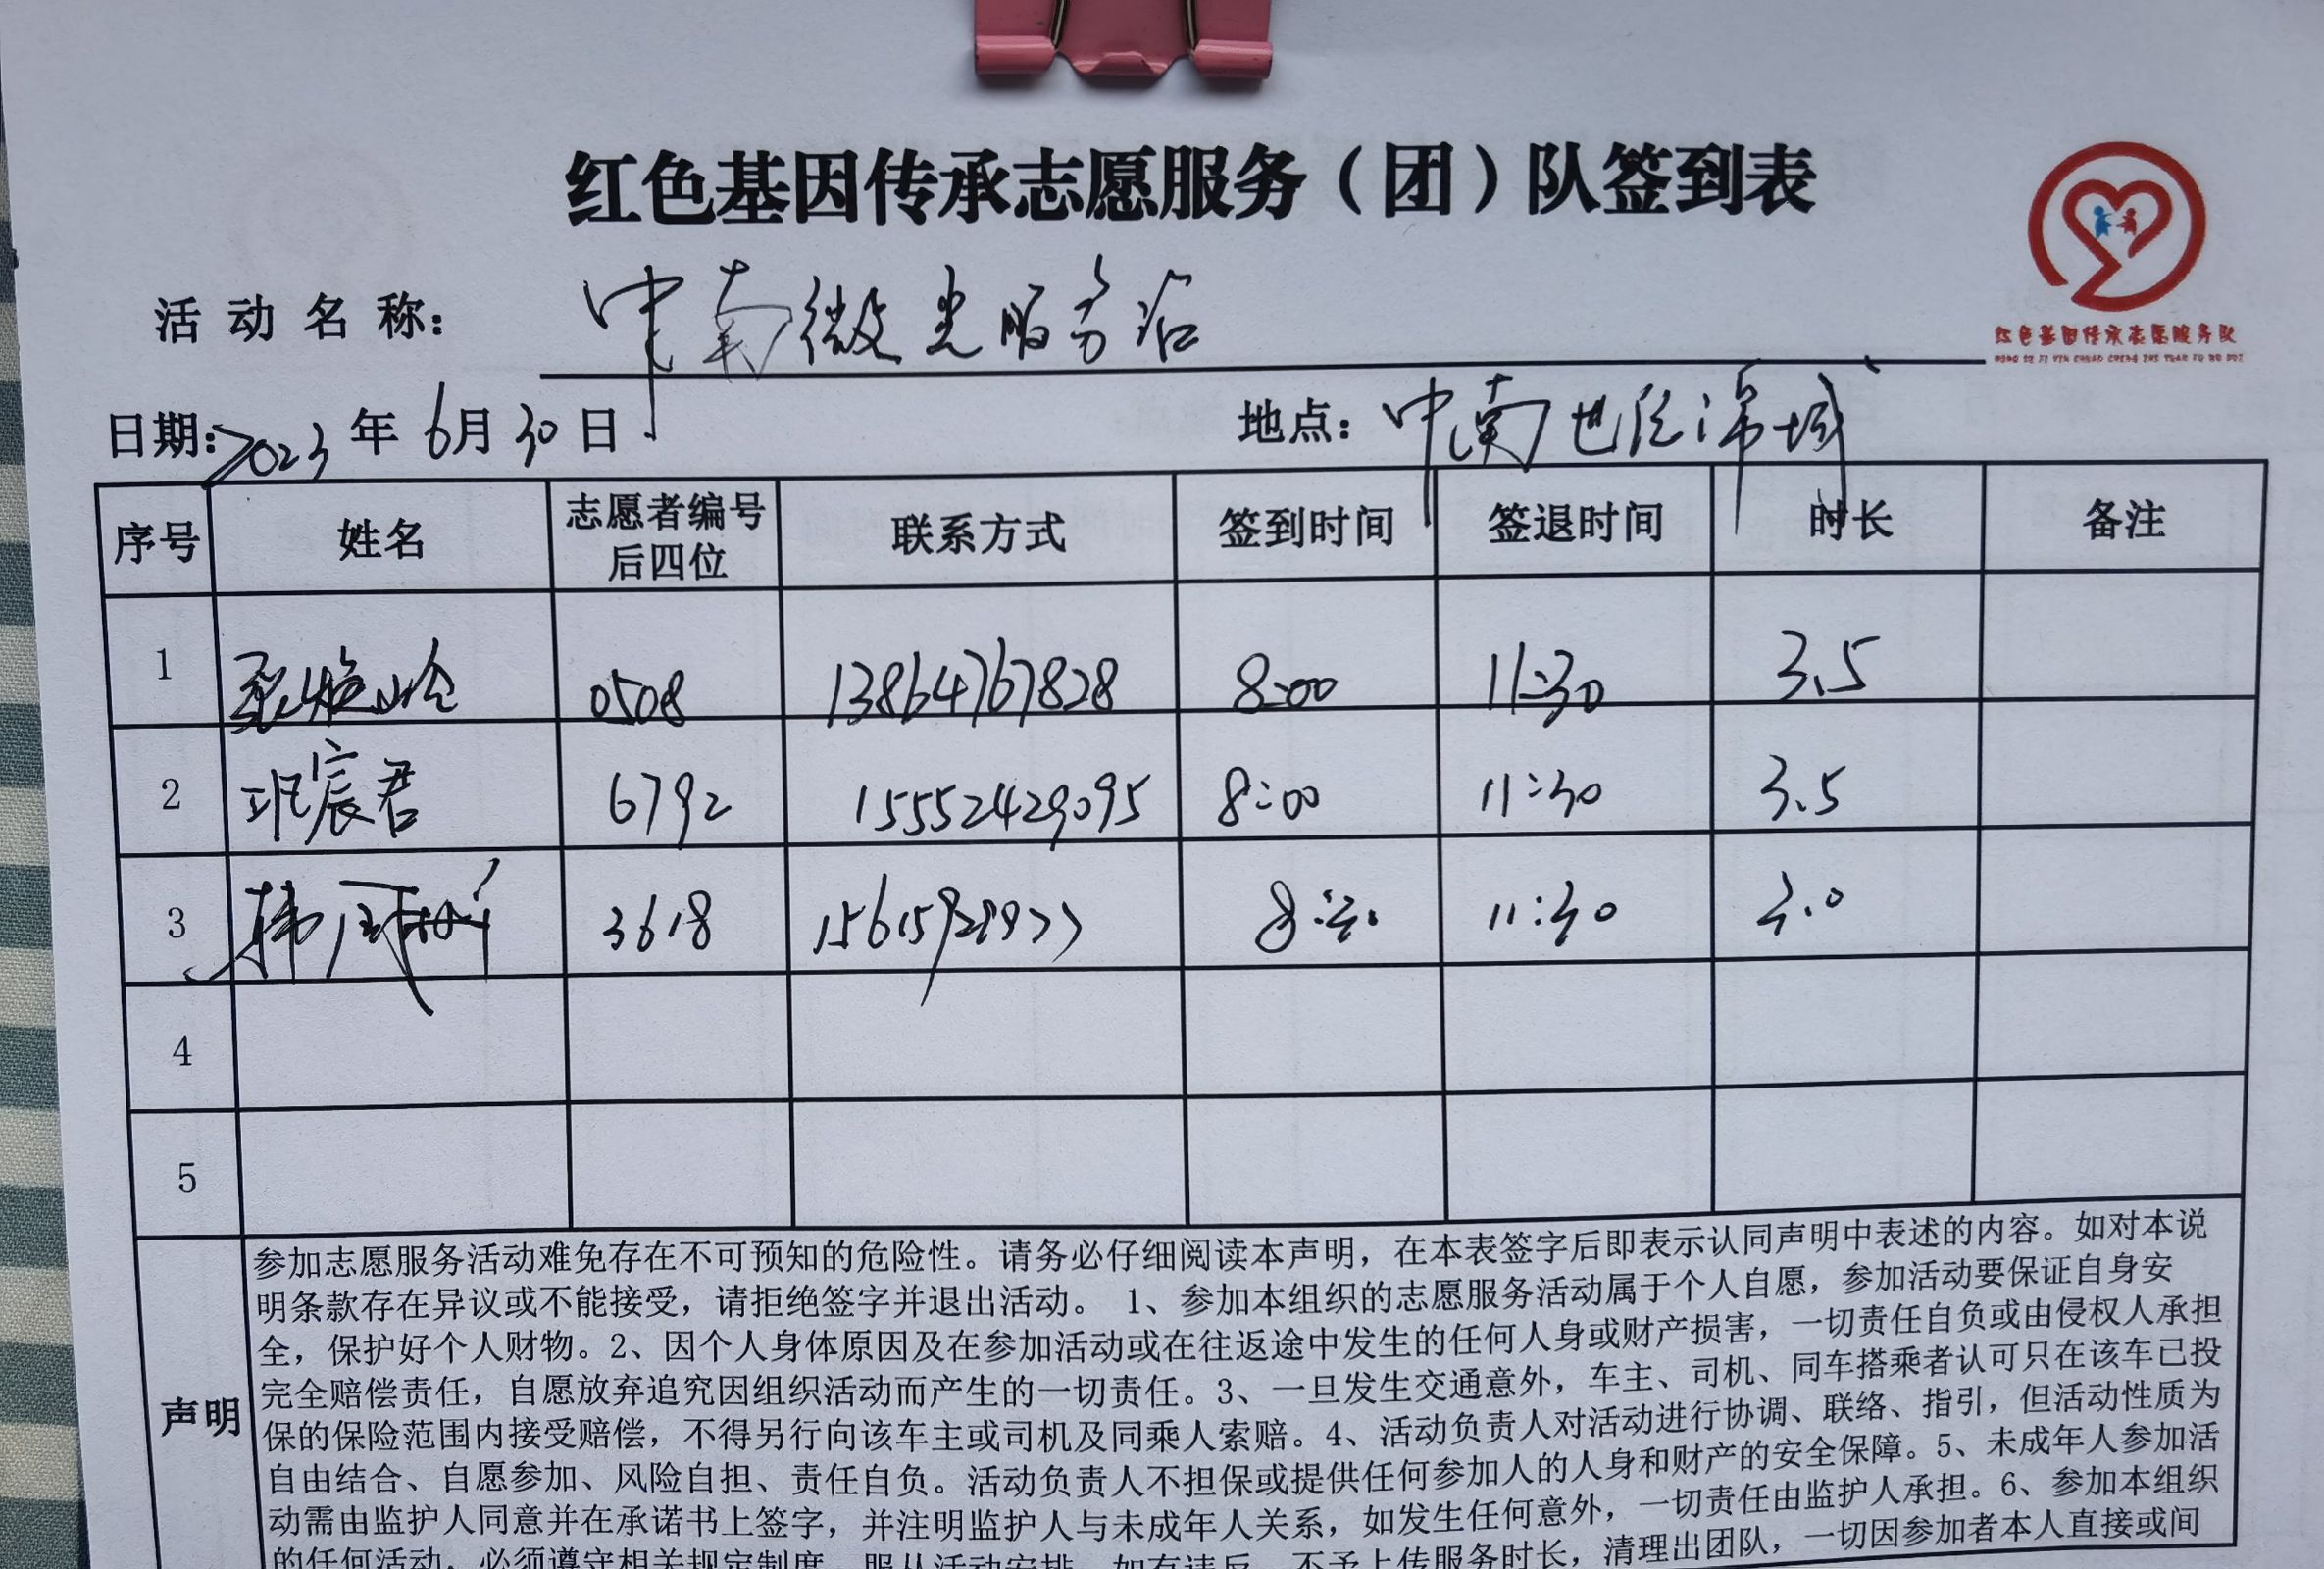 红色基因传承志愿服务（团）队签到表
红色基因传承志愿服务队
活动名称： 中南微光服务站
日期：2023年6月30日 地点：中南世纪锦城
序号 姓名 志愿者编号后四位 联系方式 签到时间 签退时间 时长 备注
1 0508 13864767828 8:00 11:30 3.5
2 宸君 6792 15552429095 8:00 11:30 3.5
3 韩 3618 11:30 3.0
4
5
声明
参加志愿服务活动难免存在不可预知的危险性。请务必仔细阅读本声明，在本表签字后即表示认同声明中表述的内容。如对本说
明条款存在异议或不能接受，请拒绝签字并退出活动。 1、参加本组织的志愿服务活动属于个人自愿，参加活动要保证自身安
全，保护好个人财物。2、因个人身体原因及在参加活动或在往返途中发生的任何人身或财产损害，一切责任自负或由侵权人承担
完全赔偿责任，自愿放弃追究因组织活动而产生的一切责任。3、一旦发生交通意外，车主、司机、同车搭乘者认可只在该车已投
保的保险范围内接受赔偿，不得另行向该车主或司机及同乘人索赔。4、活动负责人对活动进行协调、联络、指引，但活动性质为
自由结合、自愿参加、风险自担、责任自负。活动负责人不担保或提供任何参加人的人身和财产的安全保障。5、未成年人参加活
动需由监护人同意并在承诺书上签字，并注明监护人与未成年人关系，如发生任何意外，一切责任由监护人承担。6、参加本组织
的任何活动，必须遵守相关规定制度，服从活动安排，如有违反，不予上传服务时长，清理出团队，一切因参加者本人直接或间